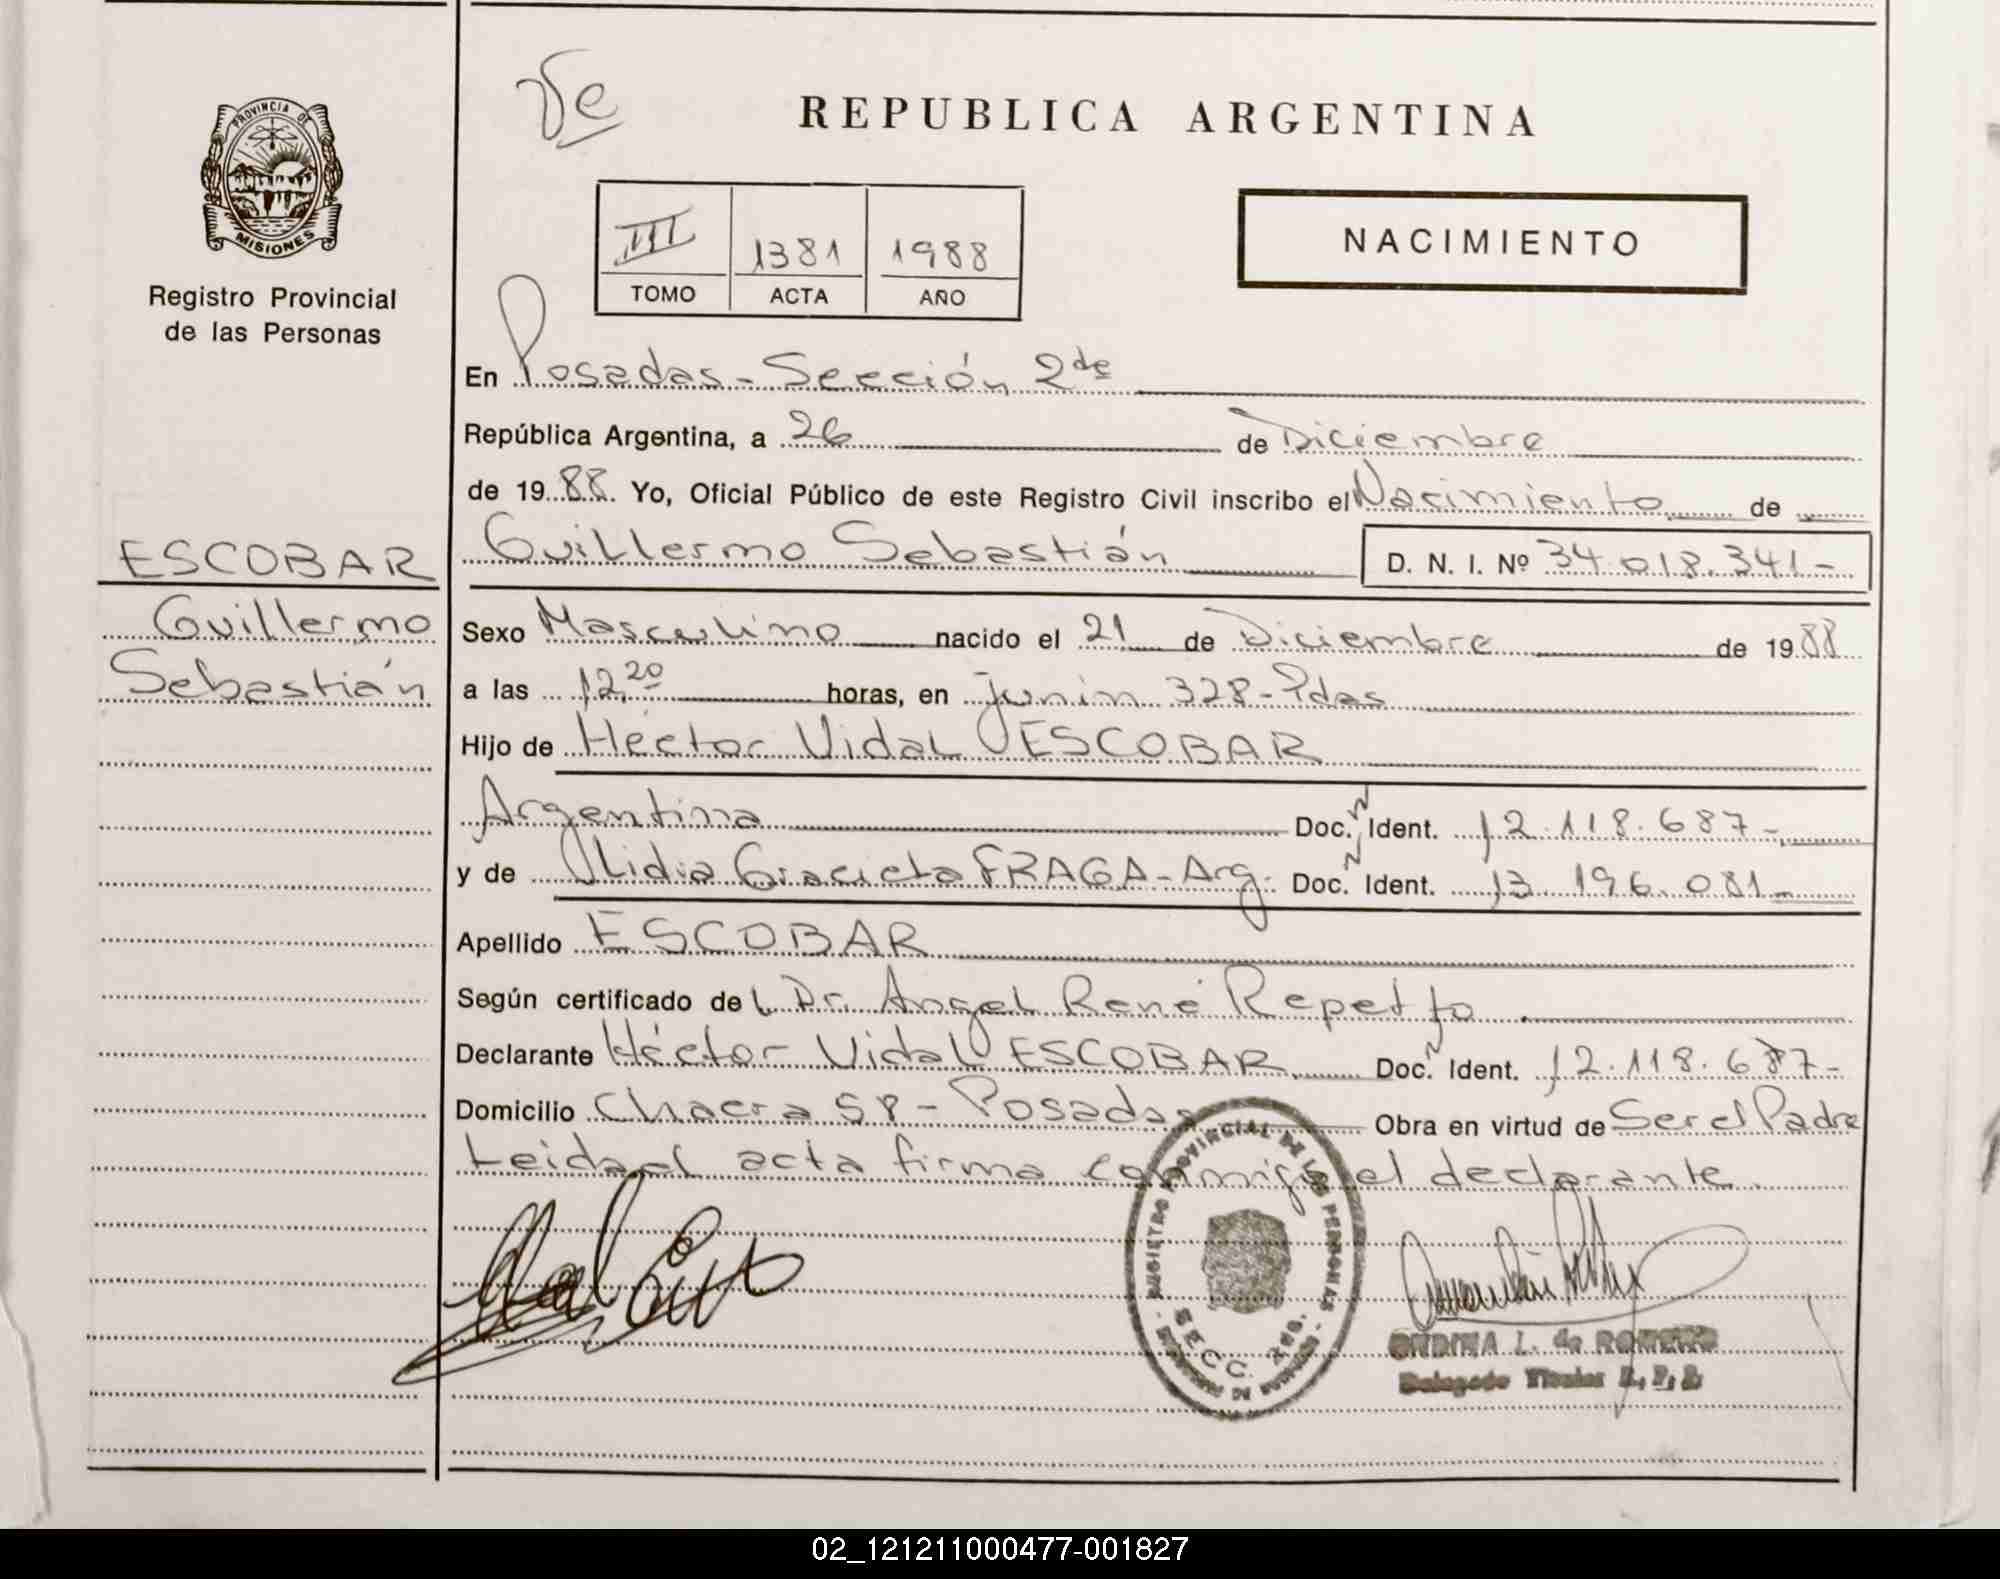 Ve
REPUBLICA ARGENTINA
PROVINCIA DE
MISIONES
Registro Provincial
de las Personas
III 1381 1988
TOMO ACTA AÑO
NACIMIENTO
En Posadas - Sección 2da
República Argentina, a 26 de Diciembre
de 1988. Yo, Oficial Público de este Registro Civil inscribo el Nacimiento de
ESCOBAR
Guillermo
Sebastián
Guillermo Sebastián D. N. I. Nº 34.018.341-
Sexo Masculino nacido el 21 de Diciembre de 1988
a las 12,20 horas, en Junín 328 - Pdas
Hijo de Héctor Vidal ESCOBAR
Argentina Doc. N Ident. 12.118.687-
y de Lidia Graciela FRAGA - Arg. Doc. N Ident. 13.196.081-
Apellido ESCOBAR
Según certificado del Dr. Angel René Repetto
Declarante Héctor Vidal ESCOBAR Doc. N Ident. 12.118.687-
Domicilio Chacra 58 - Posadas Obra en virtud de Ser el Padre
Leida el acta firma conmigo el declarante.
REGISTRO PROVINCIAL DE LAS PERSONAS
SECC. 2da.
ONDINA L. de ROMERO
Delegado Titular R. P. P.
02_121211000477-001827